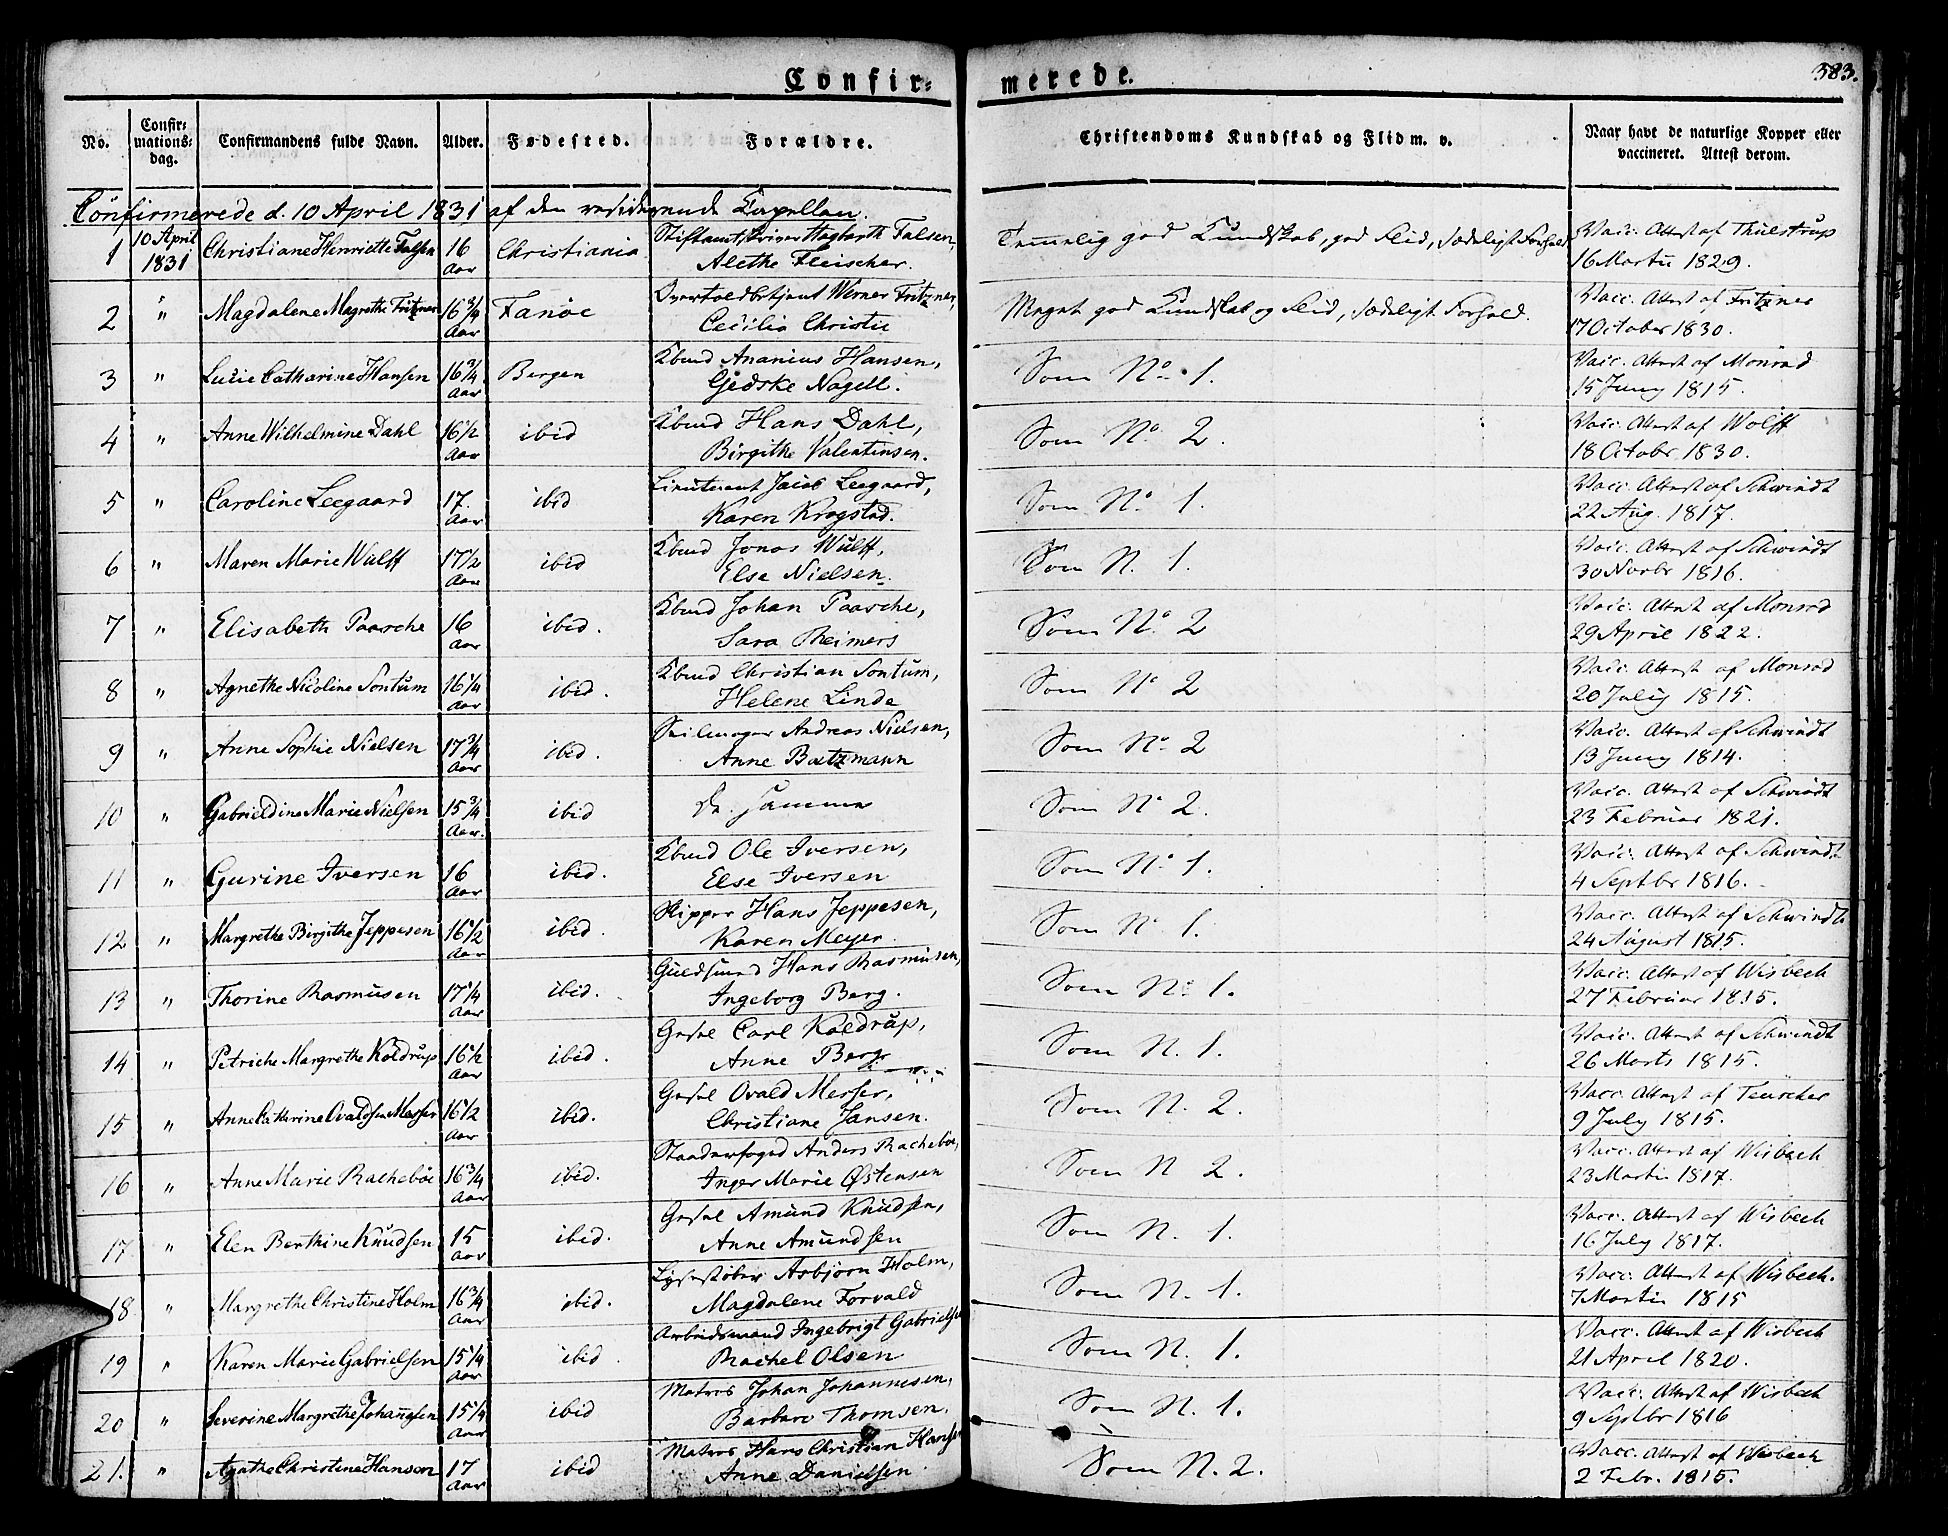 Confir-
merede.
383.
No.
Confir-
mations-
dag.
Confirmandens fulde Navn.
Alder.
Fødested.
Forældre.
Christendoms Kundskab og Flid m. v.
Naar havt de naturlige Kopper eller
vaccineret. Attest derom.
Confirmerede d. 10 April 1831 af den residerende Capellan.
1 10 April 1831 Christiane Henriette Falsen 16 Aar Christiania Stiftamtskriver Hagbarth Falsen, Temmelig god Kundskab, god Flid, sædeligt Forhold Vacc. Attest af Thulstrup
Alethe Fleischer. 16 Martii 1829.
2 " Magdalene Magrethe Fritzner 16 3/4 Aar Fanøe Overtoldbetjent Werner Fritzner, Meget god Kundskab og Flid, sædeligt Forhold. Vacc. Attest af Fritzner
Cecilia Christie 17 October 1830.
3 " Lucie Catharine Hansen 16 3/4 Aar Bergen Kbmd Ananius Hansen, Som No. 1. Vacc. Attest af Monrad
Gjedske Nagell. 15 Juny 1815.
4 " Anne Wilhelmine Dahl 16 1/2 Aar ibid Kbmd Hans Dahl, Som No. 2. Vacc. Attest af Wolff
Birgithe Valentinsen. 18 Octobr 1830.
5 " Caroline Leegaard 17. Aar ibid Lieutenant Jacob Leegaard, Som No. 1. Vacc. Attest af Schwindt
Karen Krogstad. 22 Aug. 1817.
6 " Maren Marie Wulff 17 1/2 Aar ibid Kbmd Jonas Wulff, Som N. 1. Vacc. Attest af Schwindt
Else Nielsen. 30 Novbr 1816.
7 " Elisabeth Paasche 16 Aar ibid. Kbmd Johan Paasche, Som No. 2 Vacc. Attest af Monrad
Sara Reimers 29 April 1822.
8 " Agnethe Nicoline Sontum 16 1/4 Aar ibid. Kbmd Christian Sontum, Som No 2 Vacc. Attest af Monrad
Helene Linde 20 July 1815.
9 " Anne Sophie Nielsen 17 3/4 Aar ibid. Seilmager Andreas Nielsen, Som No. 2 Vacc. Attest af Schwindt
Anne Baltzmann 13 Juny 1814.
10 " Gabrieldine Marie Nielsen 15 3/4 Aar. ibid De samme Som No 2. Vacc. Attest af Schwindt
23 Februar 1821.
11 " Gurine Iversen 16 Aar ibid. Kbmd Ole Iversen, Som No. 1. Vacc. Attest af Schwindt
Else Iversen 4 Septbr 1816.
12 " Margrethe Birgithe Jeppesen 16 1/2 Aar ibid. Skipper Hans Jeppesen, Som No. 1. Vacc. Attest af Schwindt
Karen Meyer. 24 August 1815.
13 " Thorine Rasmusen 17 1/4 Aar ibid. Guldsmed Hans Rasmusen, Som No. 1. Vacc. Attest af Wisbech
Ingeborg Berg. 27 Februar 1815.
14 " Petriche Margrethe Koldrup 16 1/2 Aar ibid. Gesel Carl Koldrup, Som N. 1. Vacc. Attest af Schwindt
Anne Berge 26 Marts 1815.
15 " Anne Catharine Ovaldsen Messer 16 1/2 Aar ibid. Gesel Ovald Messer, Som N. 2. Vacc. Attest af Teuscher
Christiane Jansen. 9 July 1815.
16 " Anne Marie Racheböe 16 3/4 Aar ibid. Stadsfoged Anders Racheböe, Som N 2. Vacc. Attest af Wisbech
Inger Marie Østensen 23 Martii 1817.
17 " Elen Berthine Knudsen 15 Aar ibid. Gesel Amund Knudsen, Som N. 1. Vacc. Attest af Wisbech
Anne Amundsen 16 July 1817.
18 " Margrethe Christine Holm 16 3/4 Aar ibid. Lysestøber Asbjørn Holm, Som N. 1. Vacc. Attest af Wisbech.
Magdalene Forvald 7 Martii 1815
19 " Karen Marie Gabrielsen 15 1/4 Aar ibid. Arbeidsmand Ingebrigt Gabrielsen Som N. 1. Vacc. Attest af Wisbech
Rachel Olsen 21 April 1820.
20 " Severine Margrethe Johannesen 15 1/4 Aar ibid Matros Johan Johannesen, Som N. 1. Vacc. Attest af Wisbech
Barbara Thomsen. 9 Septbr 1816
21. " Agathe Christine Hansen 17 Aar ibid Matros Hans Christian Hansen Som N. 2. Vacc. Attest af Wisbech
Anne Danielsen 2 Febr. 1815.